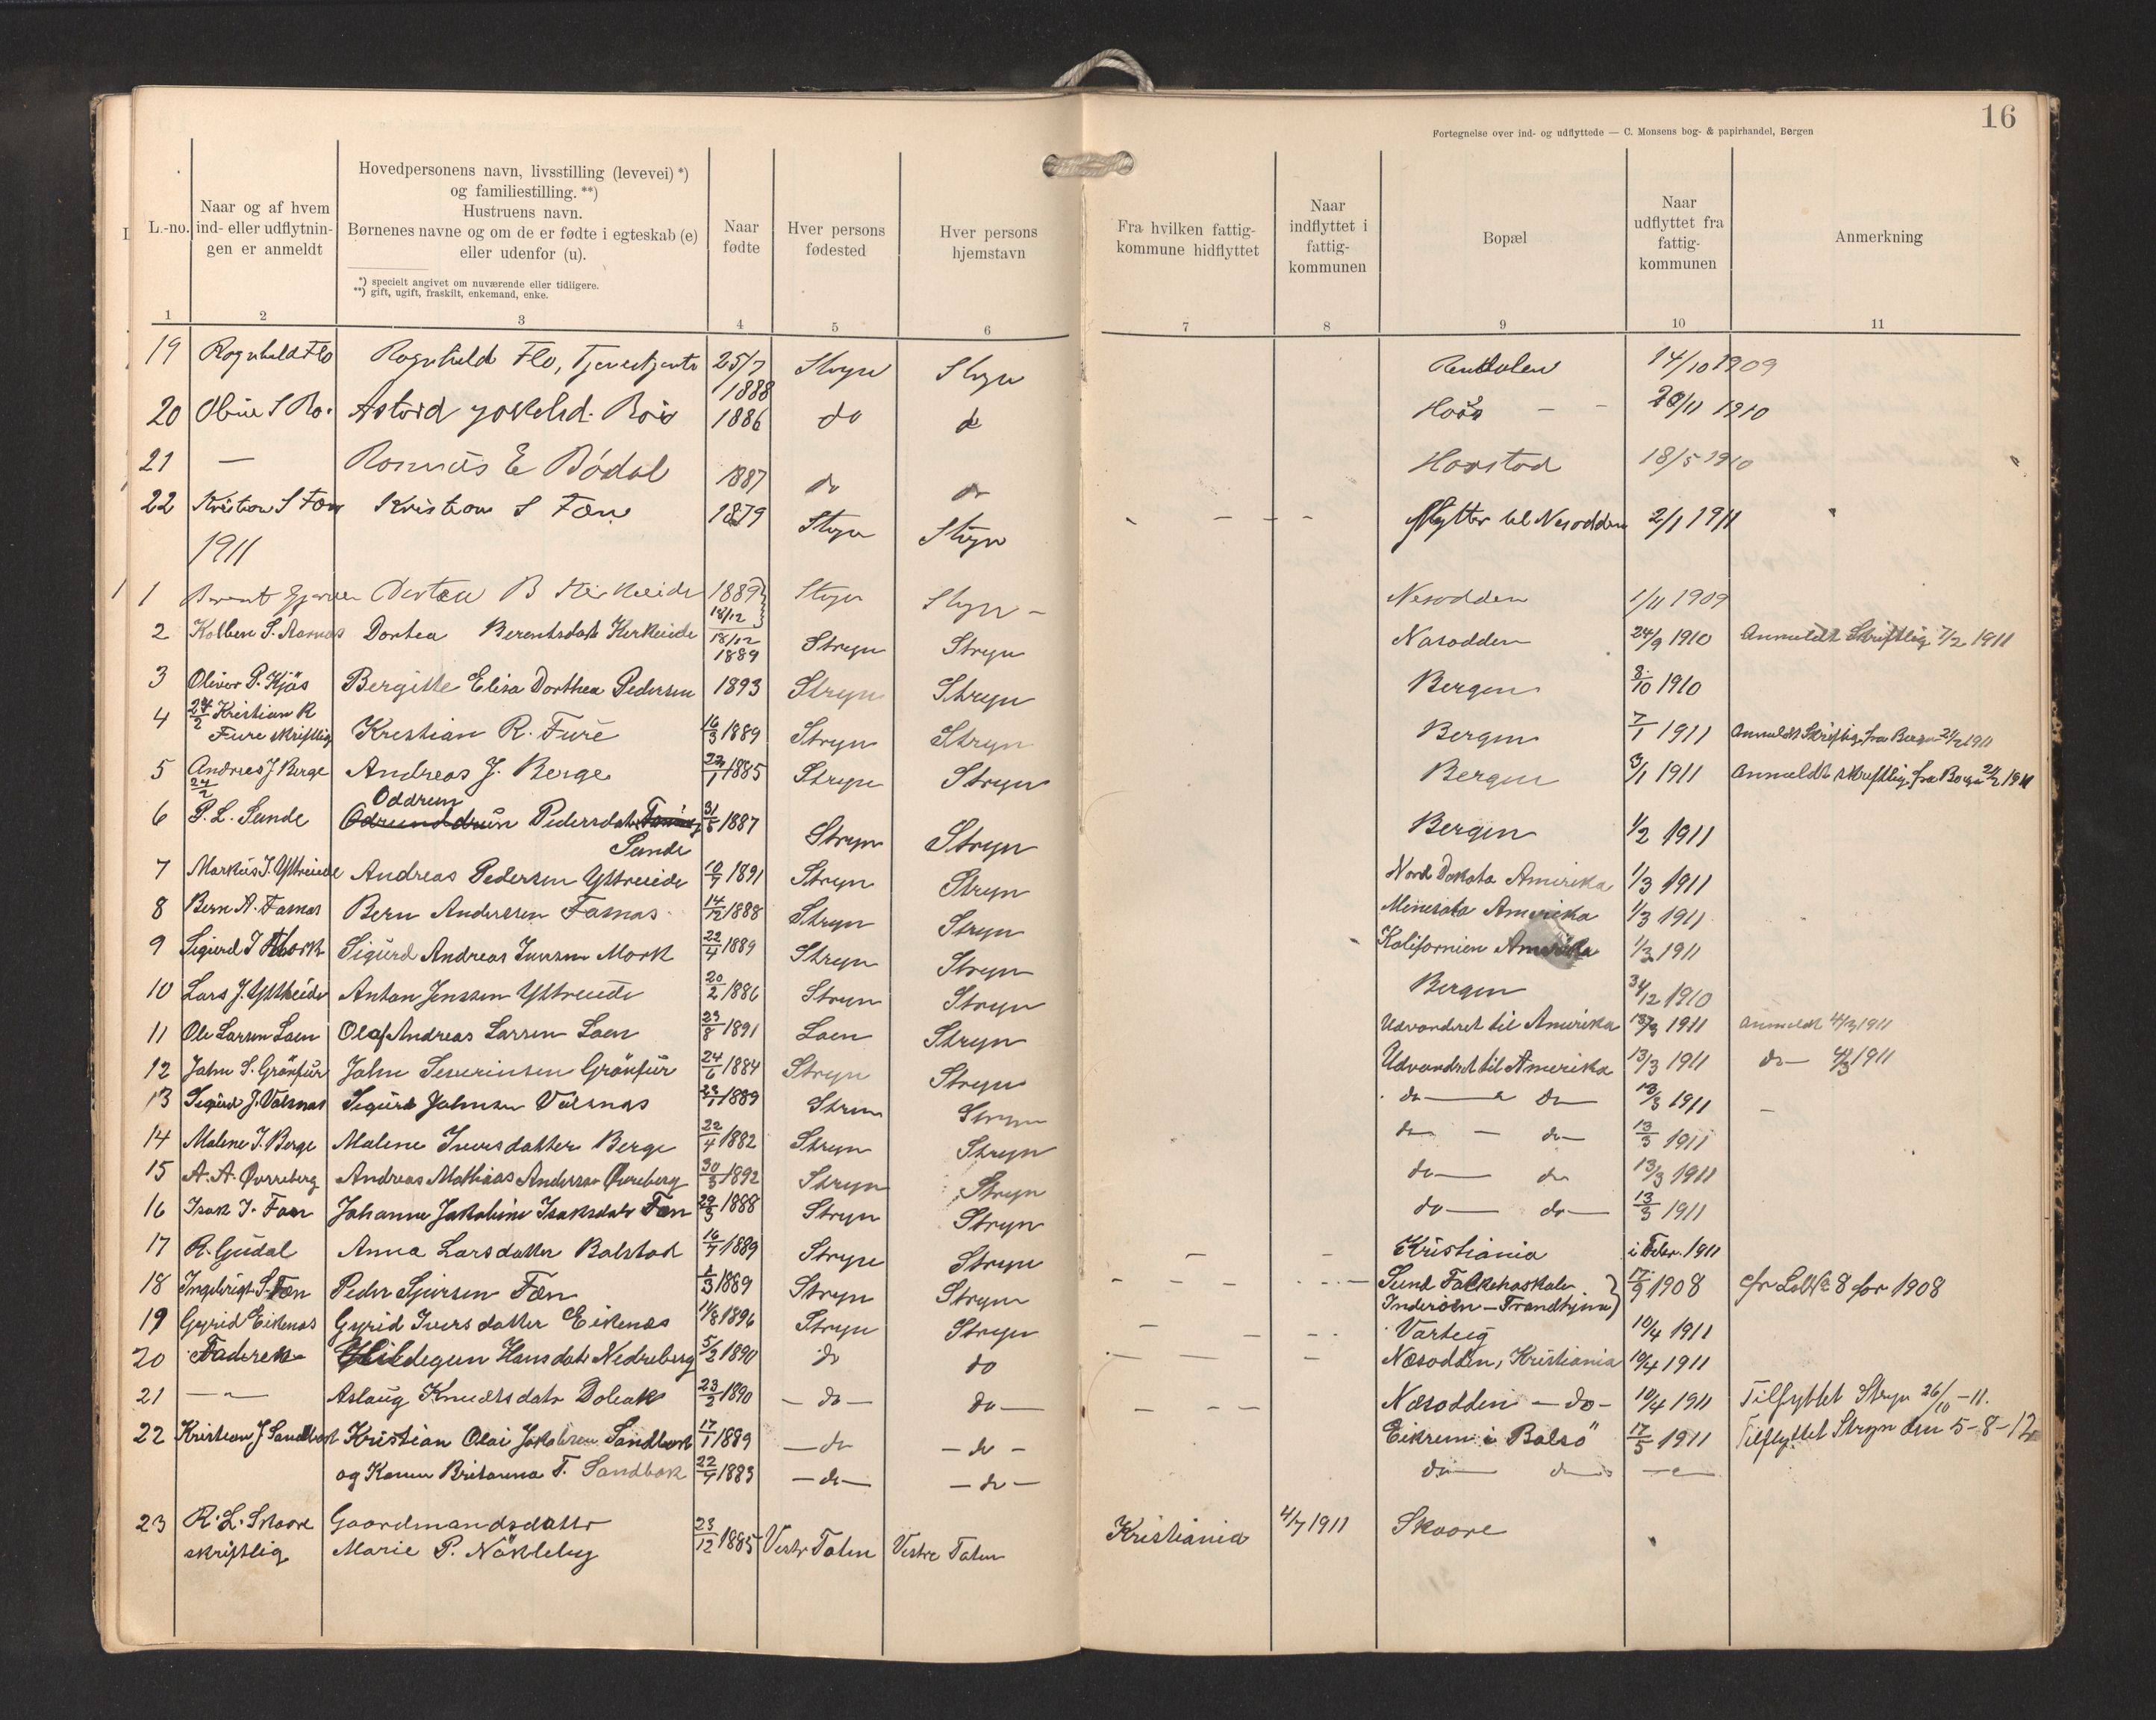 16
Fortegnelse over ind- og udflyttede — C. Monsens bog- & papirhandel, Bergen
L.-no.
Naar og af hvem
ind- eller udflytnin-
gen er anmeldt
Hovedpersonens navn, livsstilling (levevei) *)
og familiestilling. **)
Hustruens navn.
Børnenes navne og om de er fødte i egteskab (e)
eller udenfor (u).
*) specielt angivet om nuværende eller tidligere.
**) gift, ugift, fraskilt, enkemand, enke.
Naar
fødte
Hver persons
fødested
Hver persons
hjemstavn
Fra hvilken fattig-
kommune hidflyttet
Naar
indflyttet i
fattig-
kommunen
Bopæl
Naar
udflyttet fra
fattig-
kommunen
Anmerkning
1 2 3 4 5 6 7 8 9 10 11
19 Rognhild Flo Rognhild Flo, 25/7 1888 Stryn Stryn 14/10 1909
20 Astrid 1886 do do 1910
21 — E Bödal 1887 do do 18/5 1910
22 Kristian S Fæn Kristian S Fæn 1879 Stryn Stryn — — — flytter til Nesodden 2/1 1911
1911
1 B 1889 18/12 Stryn Stryn — Nesodden 1/11 1909
2 Kolben S. Aarnes Dorthea Berentsdatr Kirkeide 18/12 1889 Stryn Stryn Næsodden 24/9 1910 Anmeldt Skriftlig 7/2 1911
3 Oliver P. Kjös Bergitte Elisa Dorthea Pedersen 1893 Stryn Stryn Bergen 8/10 1910
4 24/2 Kristian R Fure skriftlig Kristian R. Fure 16/3 1889 Stryn Stryn Bergen 7/1 1911 Anmeldt Skriftlig fra Bergen 24/2 1911
5 Andreas J Berge 24/2 Andreas J. Berge 1885 Stryn Stryn Bergen 3/1 1911 Anmeldt skriftlig fra Bergen 24/2 1911
Oddrun
6 P. L. Sunde Pedersdatr 1887 Stryn Stryn Bergen 1/2 1911
Sunde
7 Markus J. Yttreeide Andreas Pedersen Yttreeide 10/7 1891 Stryn Stryn Nord Dakota Amerika 1/3 1911
8 Bern A. Fosnes Bern Anderssen Fosnes 14/12 1888 Stryn Stryn Minesota Amerika 1/3 1911
9 Sigurd I Mork Sigurd Andreas Iversen Mork 22/4 1889 Stryn Stryn Kalifornien Amerika 1/3 1911
10 Lars J. Yttreeide Anton Jenssen Yttreeide 20/2 1886 Stryn Stryn Bergen 1910
11 Ole Larsen Loen Olaf Andreas Larsen Loen 23/8 1891 Loen Stryn Udvandret til Amerika 13/3 1911 Anmeldt 4/3 1911
12 John S. Grönfur John Severinsen Grönfur 24/6 1884 Stryn Stryn Udvandret til Amerika 13/3 1911 do — 4/3 1911
13 Sigurd J. Vilsnes Sigurd Johnsen Vilsnes 1889 Stryn Stryn do — do — 13/3 1911 —
14 Malene I. Berge Malene Iversdatter Berge 22/4 1882 Stryn Stryn do — do — 13/3 1911
15 A. A. Övreberg Andreas Mathias Andersen Övreberg 30/3 1892 Stryn Stryn do — do 13/3 1911
16 Isak J. Fæn Johanne Jakobine Isaksdatr Fæn 29/3 1888 Stryn Stryn do — do — 13/3 1911
17 R. Gudal Anna Larsdatter Bolstad 16/7 1889 Stryn Stryn — — Kristiania i Febr. 1911
18 Ingebrigt S. Fæn Peder Sjursen Fæn 1/3 1889 Stryn Stryn Sund Folkehöiskole 17/9 1908 cfr Lb No 8 for 1908
Inderöen — Trondhjem
19 Gyrid Eikenes Gyrid Iversdatter Eikenes 11/8 1896 Stryn Stryn — — — Varteig 10/4 1911
20 Faderen Hildegun Hansdatr Nedreberg 5/2 1890 do do — — Næsodden, Kristiania 10/4 1911
21 — " — Aslaug Knudtsdatr Doleak 23/2 1890 — do — do — — — — Næsodden — do — 10/4 1911 Tilflyttet Stryn 26/10 - 11.
22 Kristian J Sandbæk Kristian Olai Jakobsen Sandbæk 17/1 1889 — do — do — Eikrem i Bolsö 17/5 1911 Tilflyttet Stryn den 5-8-12
og Konen Britanna T. Sandbæk 22/9 1883 — do — — do — do — do — — " —
23 R. L. Skaare Gaardmandsdatter 23/12 1885 Vestre Toten Vestre Toten Kristiania 4/7 1911 Skaare
skriftlig Marie P. Nökleby